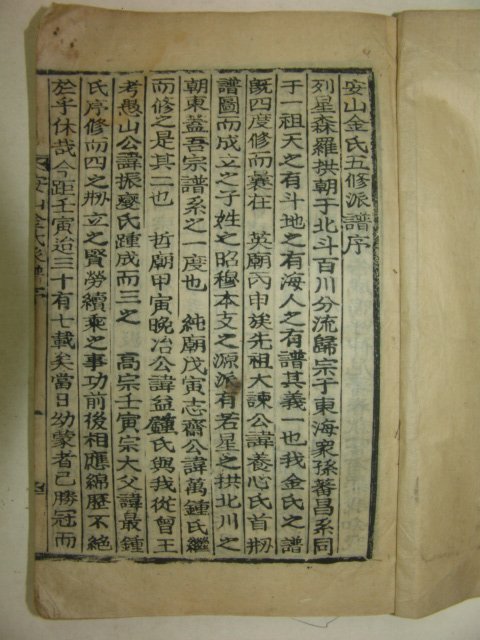 安山金氏五修派譜序
列星森羅拱朝于北斗百川分流歸宗于東海衆孫蕃昌系同
于一祖天之有斗地之有海人之有譜其義一也我金氏之譜
旣四度修而粤在　英廟丙申族先祖大諫公諱養心氏首刱
譜圖而成立之子姓之昭穆本支之源派有若星之拱北川之
朝東盖吾宗譜系之一度也　純廟戊寅志齋公諱萬鍾氏繼
而修之是其二也　哲廟甲寅晚冶公諱益鍾氏與我從曾王
考愚山公諱振燮氏踵成而三之　高宗壬寅宗大父諱最鍾
氏序修而四之刱立之賢勞續乘之事功前後相應綿歷不絶
於乎休哉今距壬寅迨三十有七載矣當日幼蒙者已勝冠而
安山金氏派譜序